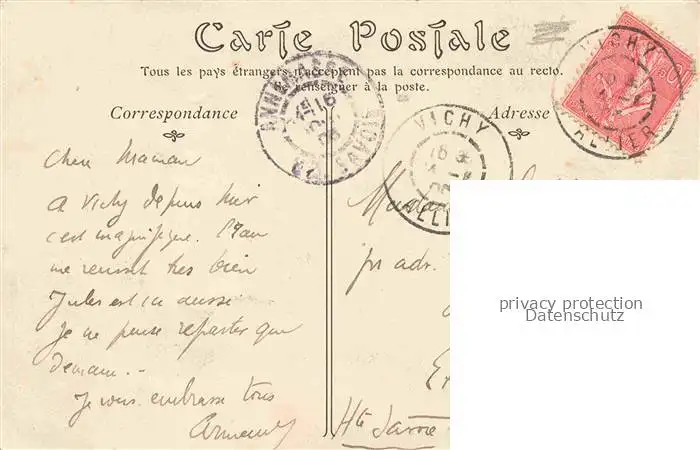 Carte Postale
Tous les pays étrangers n'acceptent pas la correspondance au recto.
Se renseigner à la poste.
Correspondance
Adresse
ANNEMASSE
SAVOIE
VICHY
ALLIER
VICHY
ALLIER
Chère Maman
A Vichy depuis hier
c'est magnifique. l'eau
me reussit très bien
Jules est ici aussi
Je ne pense repartir que
demain. -
Je vous embrasse tous
pr adr.
Hte Savoie
privacy protection
Datenschutz